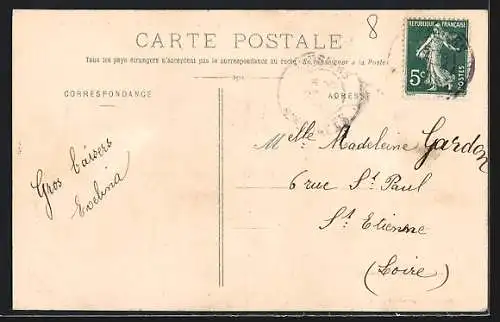 8
CARTE POSTALE
Tous les pays étrangers n'acceptent pas la correspondance au recto. Se renseigner à la Poste
RÉPUBLIQUE FRANÇAISE
5c
POSTES
CORRESPONDANCE
ADRESSE
Gros baisers
Evelina
Melle Madeleine Gardon
6 rue St Paul
St Etienne
(Loire)